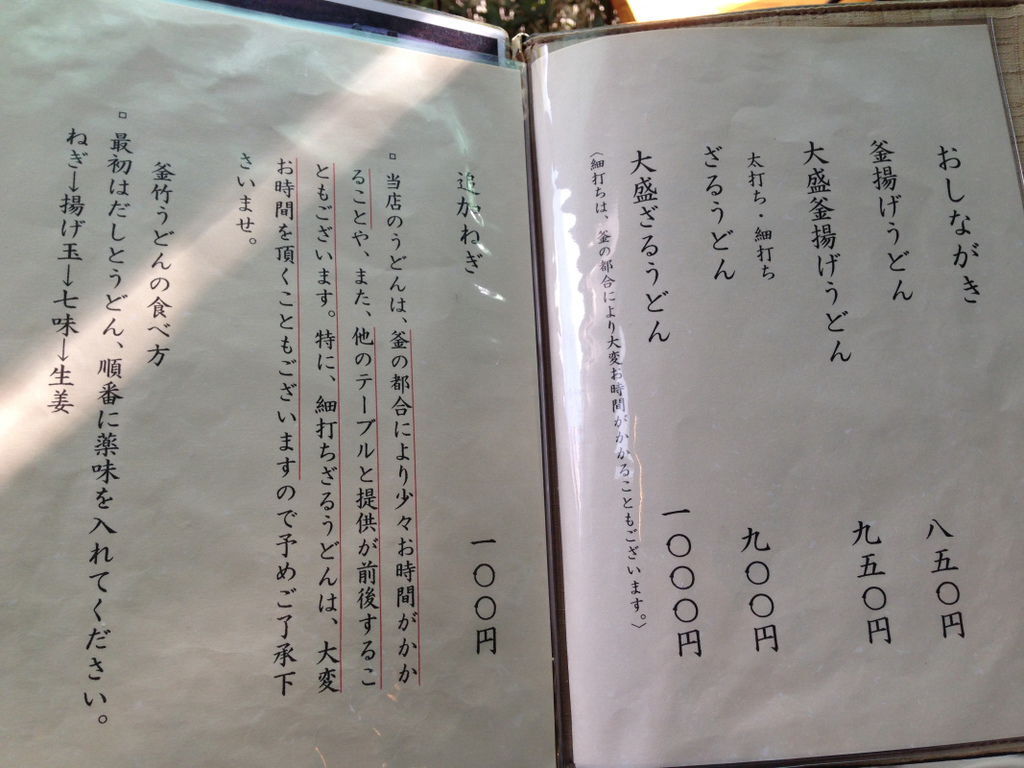 おしながき
釜揚げうどん 八五〇円
大盛釜揚げうどん 九五〇円
太打ち・細打ち
ざるうどん 九〇〇円
大盛ざるうどん 一〇〇〇円
〈細打ちは、釜の都合により大変お時間がかかることもございます。〉
追加ねぎ 一〇〇円
▫ 当店のうどんは、釜の都合により少々お時間がかか
ることや、また、他のテーブルと提供が前後するこ
ともございます。特に、細打ちざるうどんは、大変
お時間を頂くこともございますので予めご了承下
さいませ。
釜竹うどんの食べ方
▫ 最初はだしとうどん、順番に薬味を入れてください。
ねぎ→揚げ玉→七味→生姜